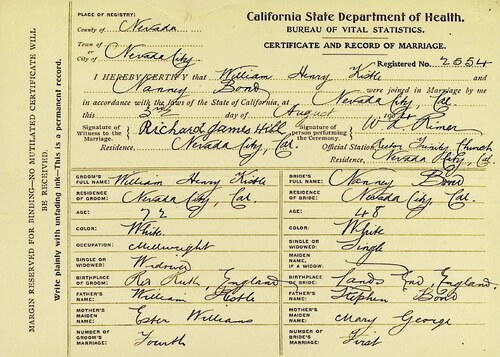 PLACE OF REGISTRY:
County of Nevada
Town of
or
City of Nevada City
California State Department of Health.
BUREAU OF VITAL STATISTICS.
CERTIFICATE AND RECORD OF MARRIAGE.
Registered No. 2554
I HEREBY CERTIFY that William Henry Kistle and
Nanney Bond were joined in Marriage by me
in accordance with the laws of the State of California, at Nevada City, Cal.
this 3rd day of August
Signature of Witness to the Marriage. Richard James Hill
Residence, Nevada City, Cal.
Signature of person performing the Ceremony. W. A. Rimer
Official Station, Rector Trinity Church
Residence, Nevada City, Cal.
GROOM'S FULL NAME: William Henry Kistle
RESIDENCE OF GROOM: Nevada City, Cal.
AGE: 72
COLOR: White
OCCUPATION: Millwright
SINGLE OR WIDOWED: Widower
BIRTHPLACE OF GROOM: England
FATHER'S NAME: William Kistle
MOTHER'S MAIDEN NAME: Ester Williams
NUMBER OF GROOM'S MARRIAGE: Fourth
BRIDE'S FULL NAME: Nanney Bond
RESIDENCE OF BRIDE: Nevada City, Cal.
AGE: 48
COLOR: White
SINGLE OR WIDOWED: Single
MAIDEN NAME, IF A WIDOW:
BIRTHPLACE OF BRIDE: Lands End England
FATHER'S NAME: Stephen Bond
MOTHER'S MAIDEN NAME: Mary George
NUMBER OF BRIDE'S MARRIAGE: First
MARGIN RESERVED FOR BINDING—NO MUTILATED CERTIFICATE WILL
BE RECEIVED.
Write plainly with unfading ink—This is a permanent record.